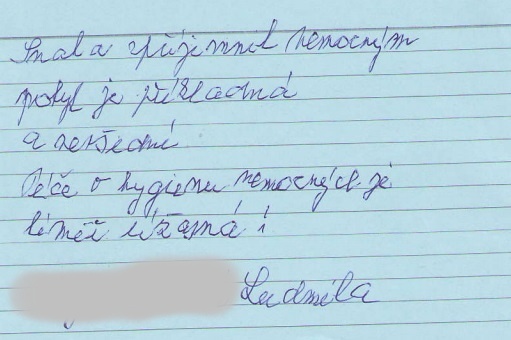 Snaha zpříjemnit nemocným
pobyt je příkladná
a nevšední.
Péče o hygienu nemocných je
téměř úžasná!
Ludmila